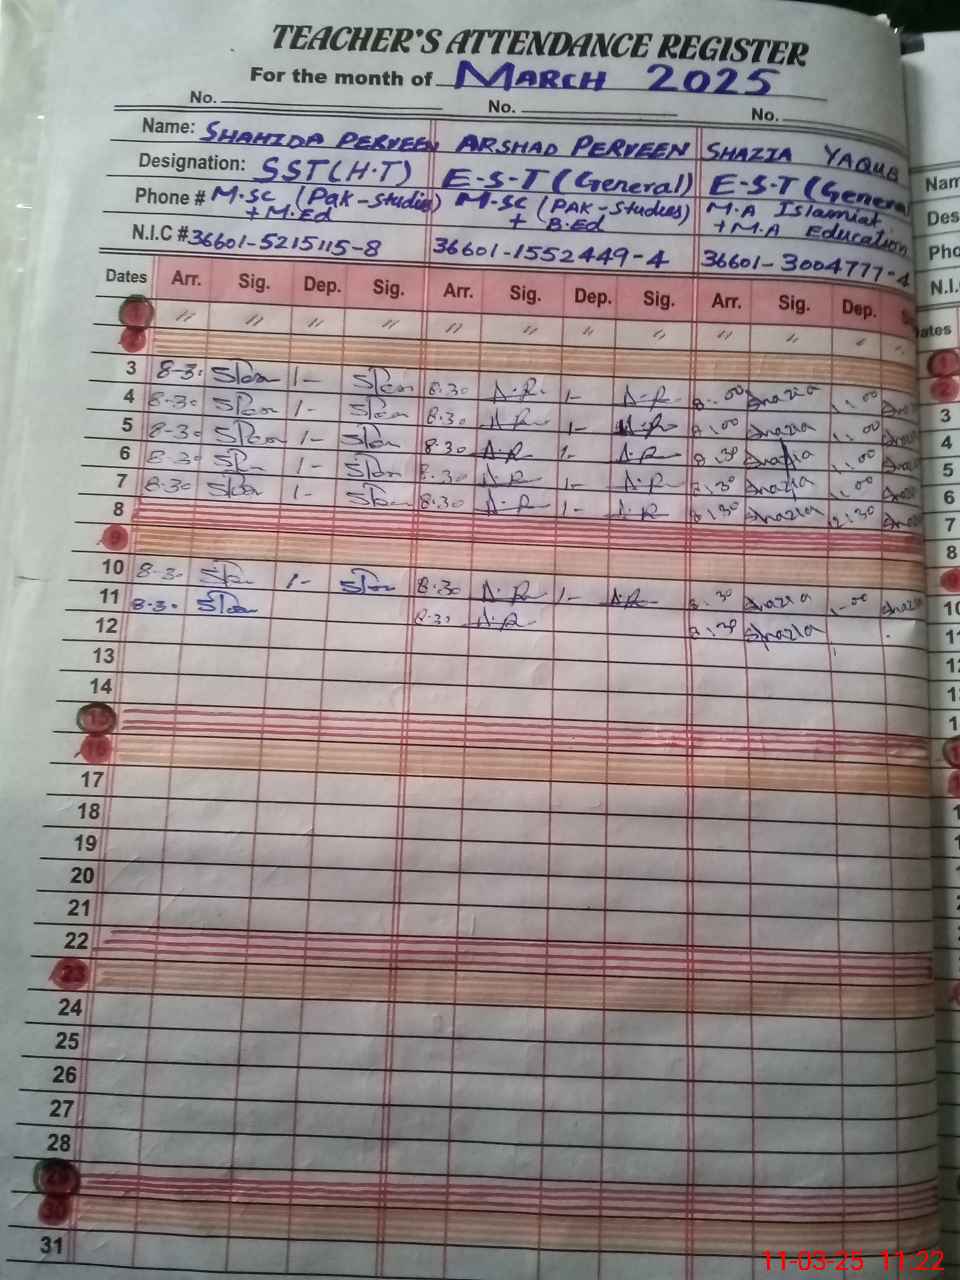 TEACHER'S ATTENDANCE REGISTER
For the month of MARCH 2025
No. No. No.
Name: SHAHIDA PERVEEN ARSHAD PERVEEN SHAZIA YAQUB
Designation: SST(H.T) E-S-T (General) E-S-T (General
Phone # M.SC (Pak-Studies) M-SC (PAK-Studies) M.A Islamiat
+M.Ed + B.Ed +M.A Education
N.I.C # 36601-5215115-8 36601-1552449-4 36601-3004777-4
Dates Arr. Sig. Dep. Sig. Arr. Sig. Dep. Sig. Arr. Sig. Dep.
1 〃 〃 〃 〃 〃 〃 〃 〃 〃 〃 〃
2
3 8-30 1- 8.30 A.R 1- A.R 8.00 Shazia 1.00
4 8-30 1- 8.30 A.R 1- A.R 8.00 Shazia 1.00
5 8-30 1- 8.30 A.R 1- A.R 8.30 Shazia 1.00
6 8-30 1- 8.30 A.R 1- A.R 8.30 Shazia 1.00
7 8-30 8.30 A.R 1- A.R 8.30 Shazia 12:30
8
9
10 8-30 1- 8.30 A.R 1- A.R 8.30 Shazia 1-00
11 8-30 8.30 A.R 8.30 Shazia
12
13
14
15
16
17
18
19
20
21
22
23
24
25
26
27
28
29
30
31
Nam
Des
Pho
N.I.
ates
1
2
3
4
5
6
7
8
9
10
11
12
11-03-25 11:22